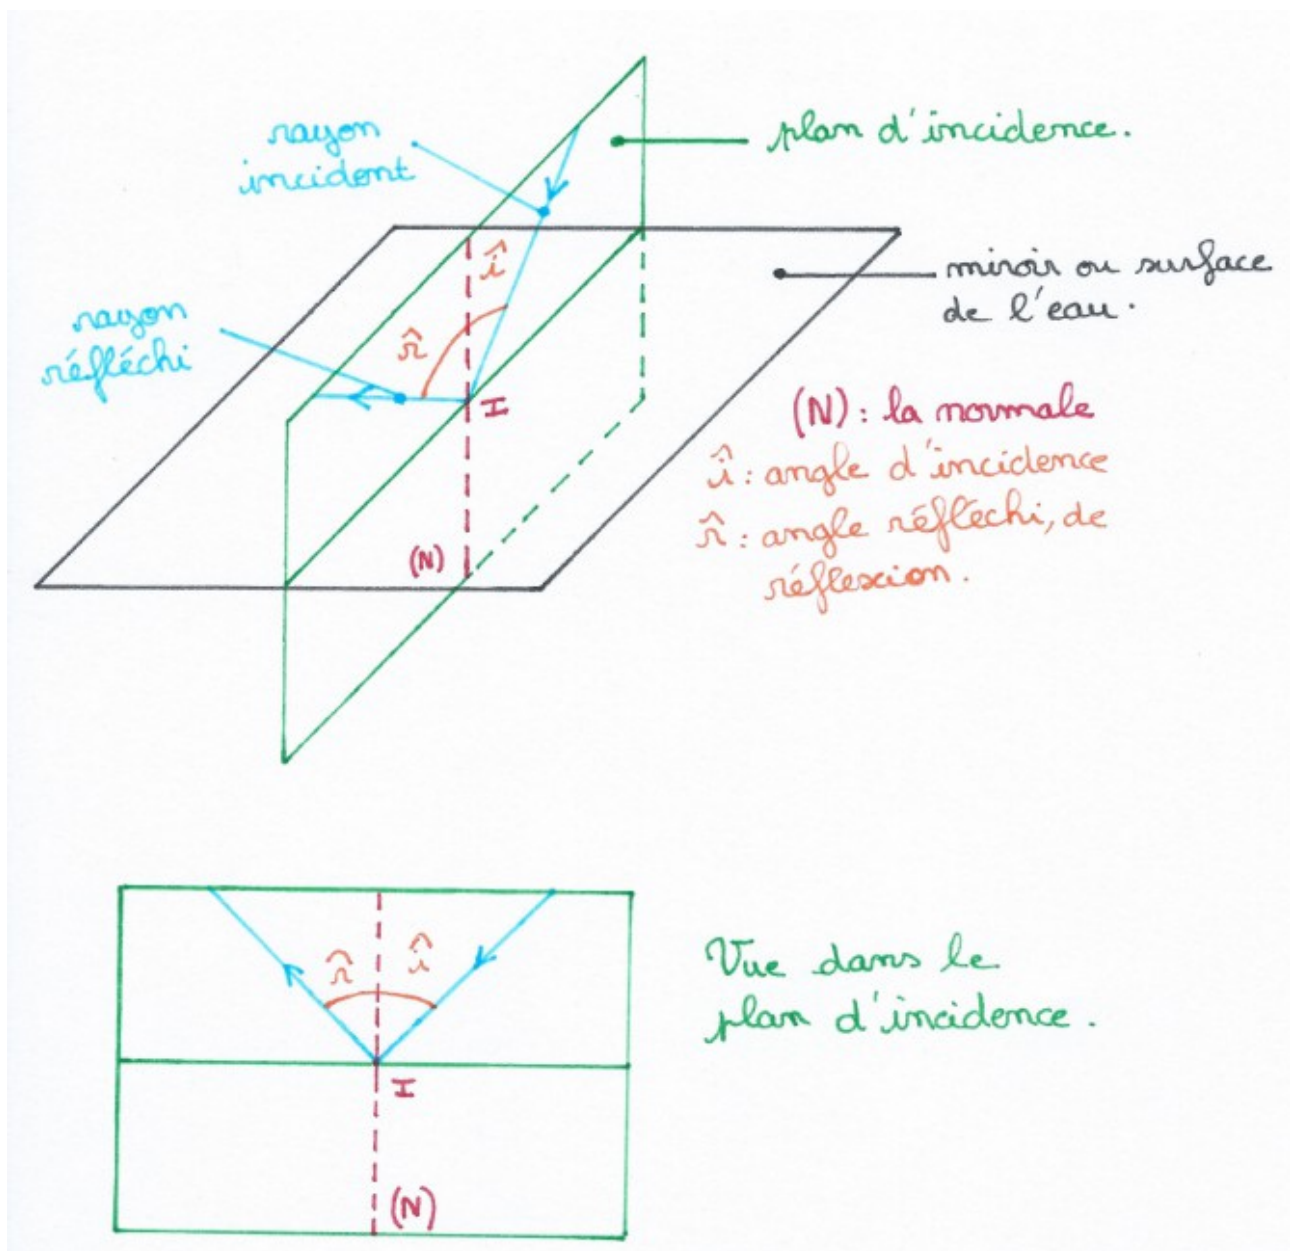 rayon
incident
plan d'incidence.
î
miroir ou surface
de l'eau.
rayon
réfléchi
r̂
I
(N) : la normale
î : angle d'incidence
r̂ : angle réfléchi, de
réflexion.
(N)
r̂
î
Vue dans le
plan d'incidence.
I
(N)